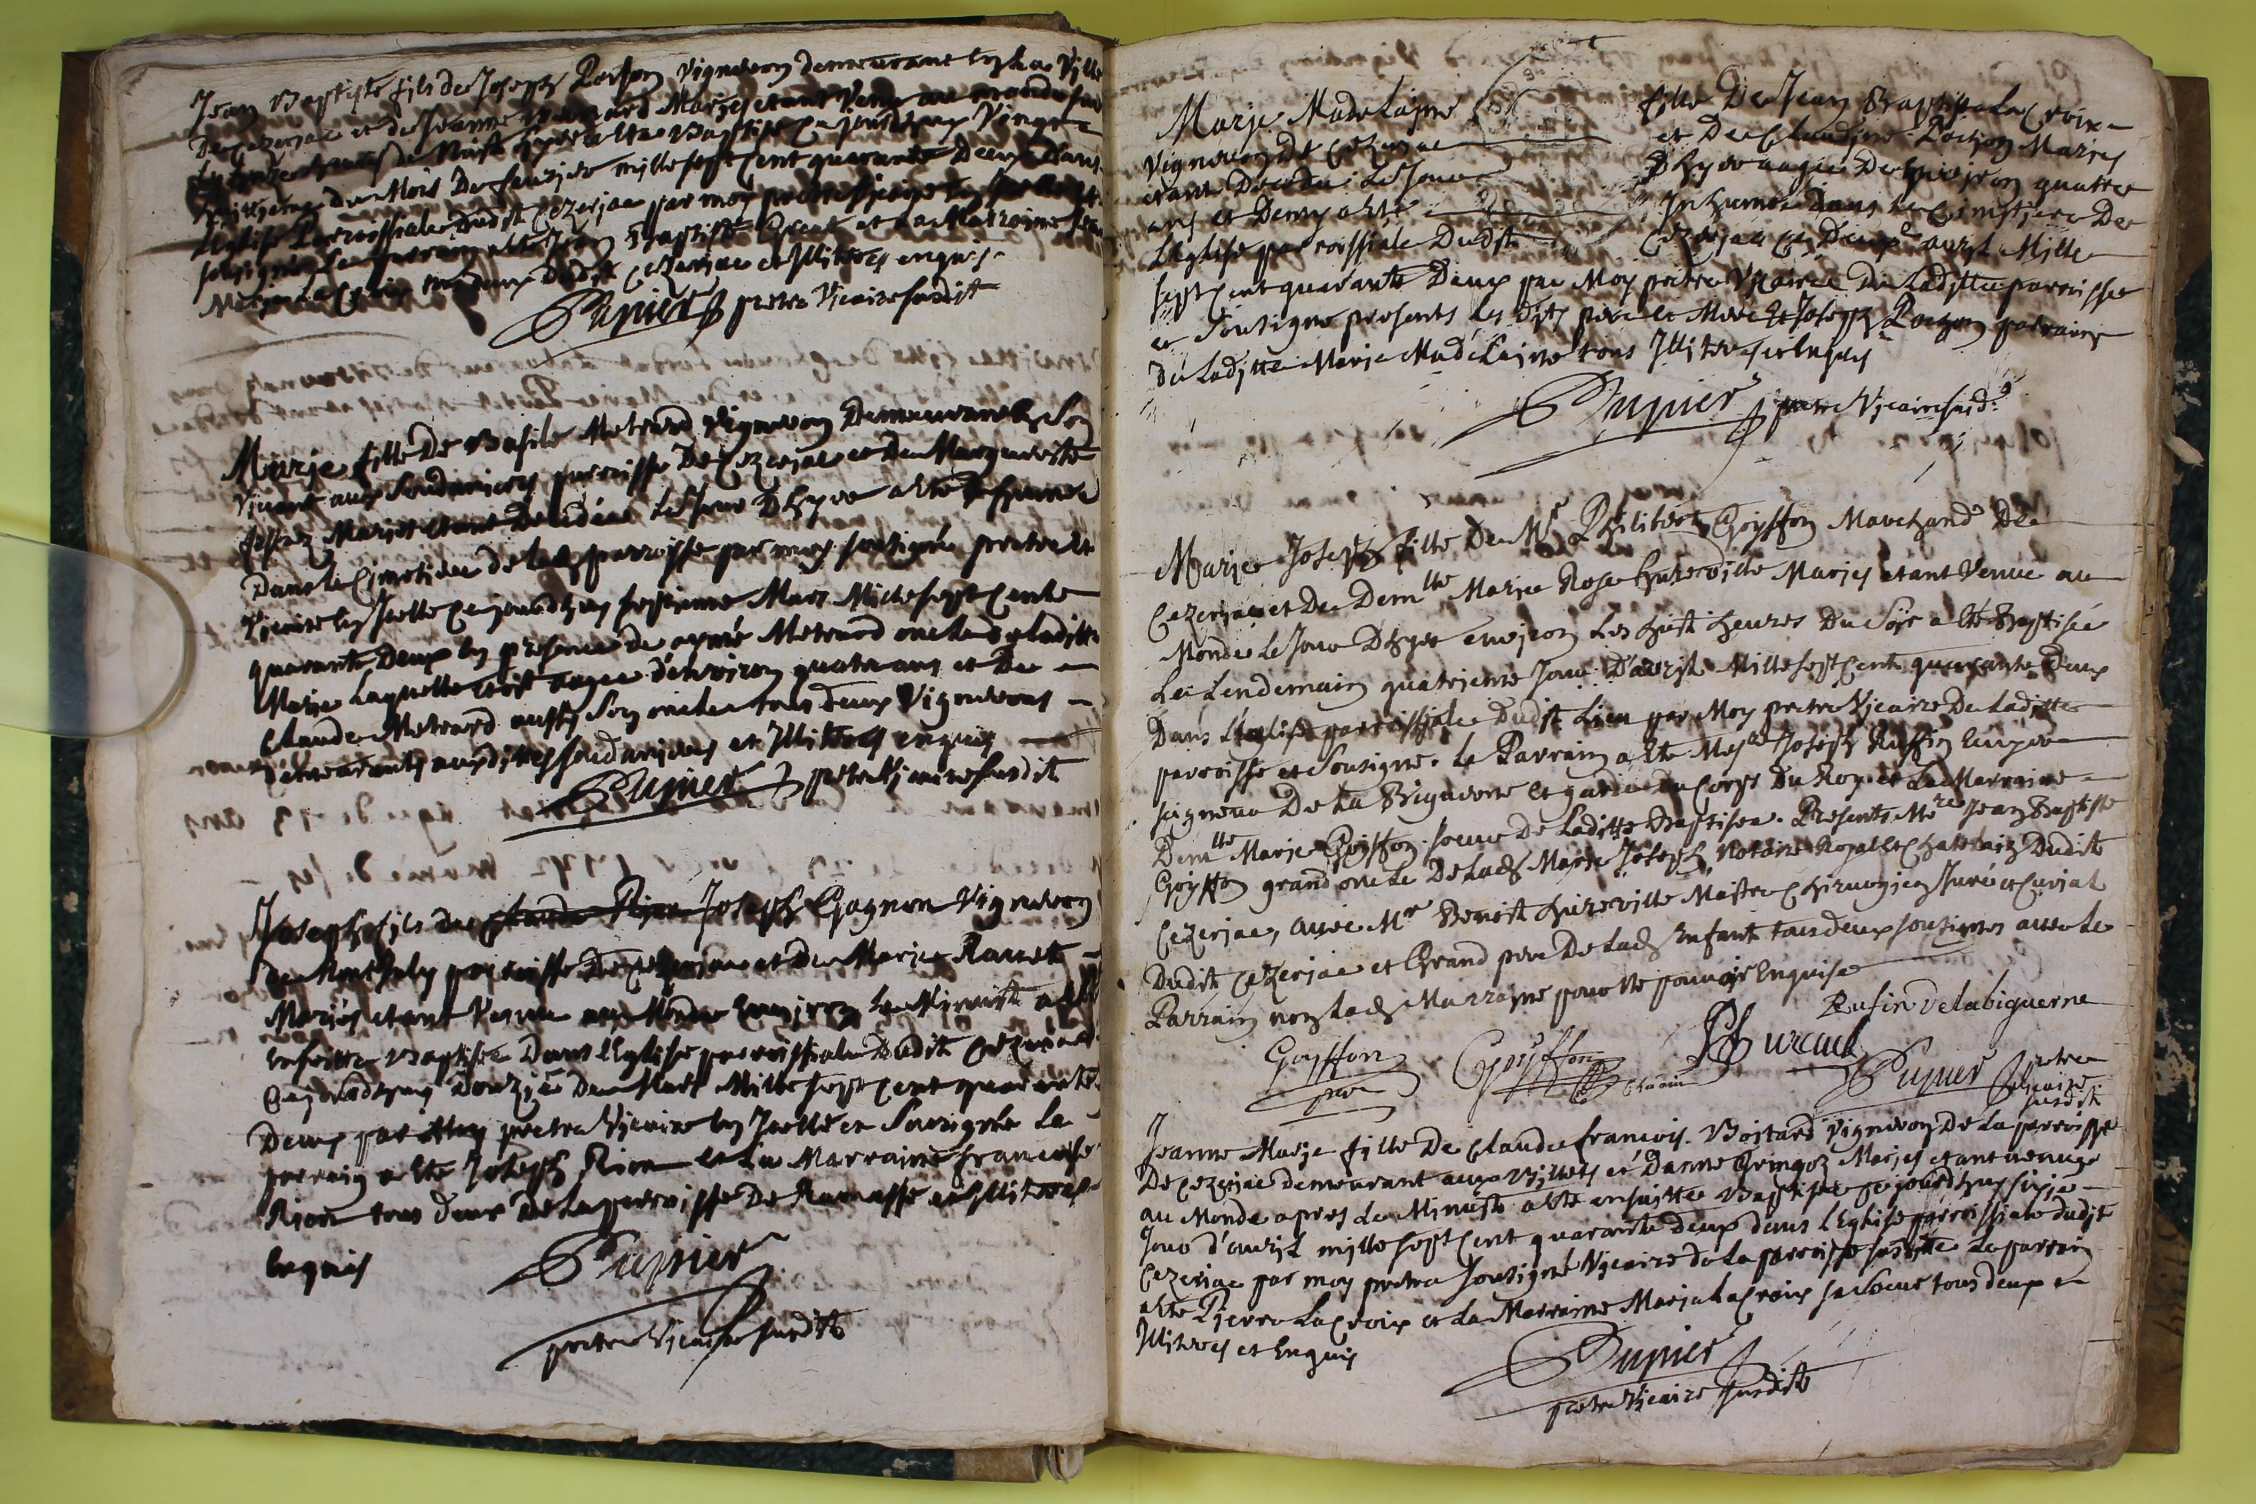 Jean Baptiste fils de Joseph Vigneron demeurant en la Ville
De Cezeriac et de Jeanne Mariés etant Venu au monde
de Nuit a été Baptisé Cejourdhuy Vingt
huitieme du Mois De fevrier mille sept Cent quarante Deux Dans
L'Eglise Parroissiale dudit Cezeriac par moy pretre Vicaire
soussigné Le parrain a été Jean Baptiste et La Marraine
Marie La Croix tous deux Dudit Cezeriac et Illiteres enquis.
Pupier pretre Vicaire susdit
Marie fille De Basile Metrard Vigneron Demeurant En Son
Vivant aux Soudanieres parroisse De Cezeriac et De Marguerite
Mariés etant Decedée Le Jour D'hyer a été Inhumée
Dans le Cimetiere de lad parroisse par moy soussigné pretre et
Vicaire en Icelle Cejourdhuy septieme Mars Mille sept Cent
quarante Deux en presence de aymé Metrard oncle de laditte
Marie Laquelle etoit agée d'environ quatre ans et De
Claude Metrard aussy Son oncle tous deux Vignerons
demeurants auxdittes Soudanieres et Illiteres enquis
Pupier pretre Vicaire susdit
Joseph fils de Claude Rion Joseph Gagnon Vigneron
de parroisse De Cezeriac et De Marie Ravet
Mariés etant Venu au Monde Environ Le Minuit a été
ensuitte Baptisé Dans L'Eglise parroissiale Dudit Cezeriac
Cejourdhuy Douzie De Mars Mille sept cent quarante
Deux par Moy pretre Vicaire En Icelle et Sousigné Le
parrain a été Joseph Rion et La Marraine francoise
Rion tous deux De La parroisse De Ramasse et Illiteres
Enquis
Pupier
pretre Vicaire susdit
Marie Madelaine fille De Jean Baptiste La Croix
Vigneron De Cezeriac et De Claudine Pochon Mariés
etant Decedée Le Jour D'hyer agée De Environ quatre
ans et Demy a été Inhumée Dans Le Cimetiere De
L'Eglise parroissiale Dudit Cezeriac Ce Deuxe avril Mille
sept Cent quarante Deux par Moy pretre Vicaire De Laditte parroisse
et Sousigné presents Les Dits pere et Mere et Joseph Pochon parrain
De Laditte Marie Madelaine tous Illiteres et Enquis
Pupier pretre Vicaire susd.
Marie Joseph fille De Mr Philibert Goyffon Marchand De
Cezeriac et De Demlle Marie Rose Hureville Mariés etant Venue au
Monde Le Jour D'hyer environ Les huit heures Du Soir a été Baptisée
Le Lendemain quatrieme Jour D'avril Mille sept Cent quarante Deux
Dans L'Eglise parroissiale Dudit Lieu par Moy pretre Vicaire De Laditte
parroisse et Sousigné. Le Parrain a été Mesre Joseph Ruffin Ecuyer
seigneur De La Biguerne et garde du Corps Du Roy et La Marraine
Demlle Marie Goyffon soeur De Laditte Baptisée. Presents Mre Jean Baptiste
Goyffon grand oncle De Lad Marie Joseph Notaire Royal et Chatelain Dudit
Cezeriac, avec Mr Benoit Hureville Maitre Chirurgien Juré et Curial
Dudit Cezeriac et Grand pere De Lad Enfant tous deux soussignés avec Le
Parrain non Lad Marraine pour ne pouvoir Enquise
Rufin Delabiguerne
Goyffon pere Goyffon
Pupier pretre Vicaire susdit
Jeanne Marie fille De Claude francois Boitard Vigneron De La parroisse
De Cezeriac demeurant aux Villets et D'anne Gringoz Mariés etant venuge
au Monde apres Le Minuit a été ensuitte Baptisée cejourdhuy sixie
Jour d'avril mille sept Cent quarante deux dans L'Eglise parroissiale dudit
Cezeriac par moy pretre Sousigné Vicaire de La parroisse susditte Le parrain
a été Pierre La Croix et La Marraine Marie La Croix sa Soeur tous deux
Illiteres et Enquis
Pupier
pretre Vicaire susdit